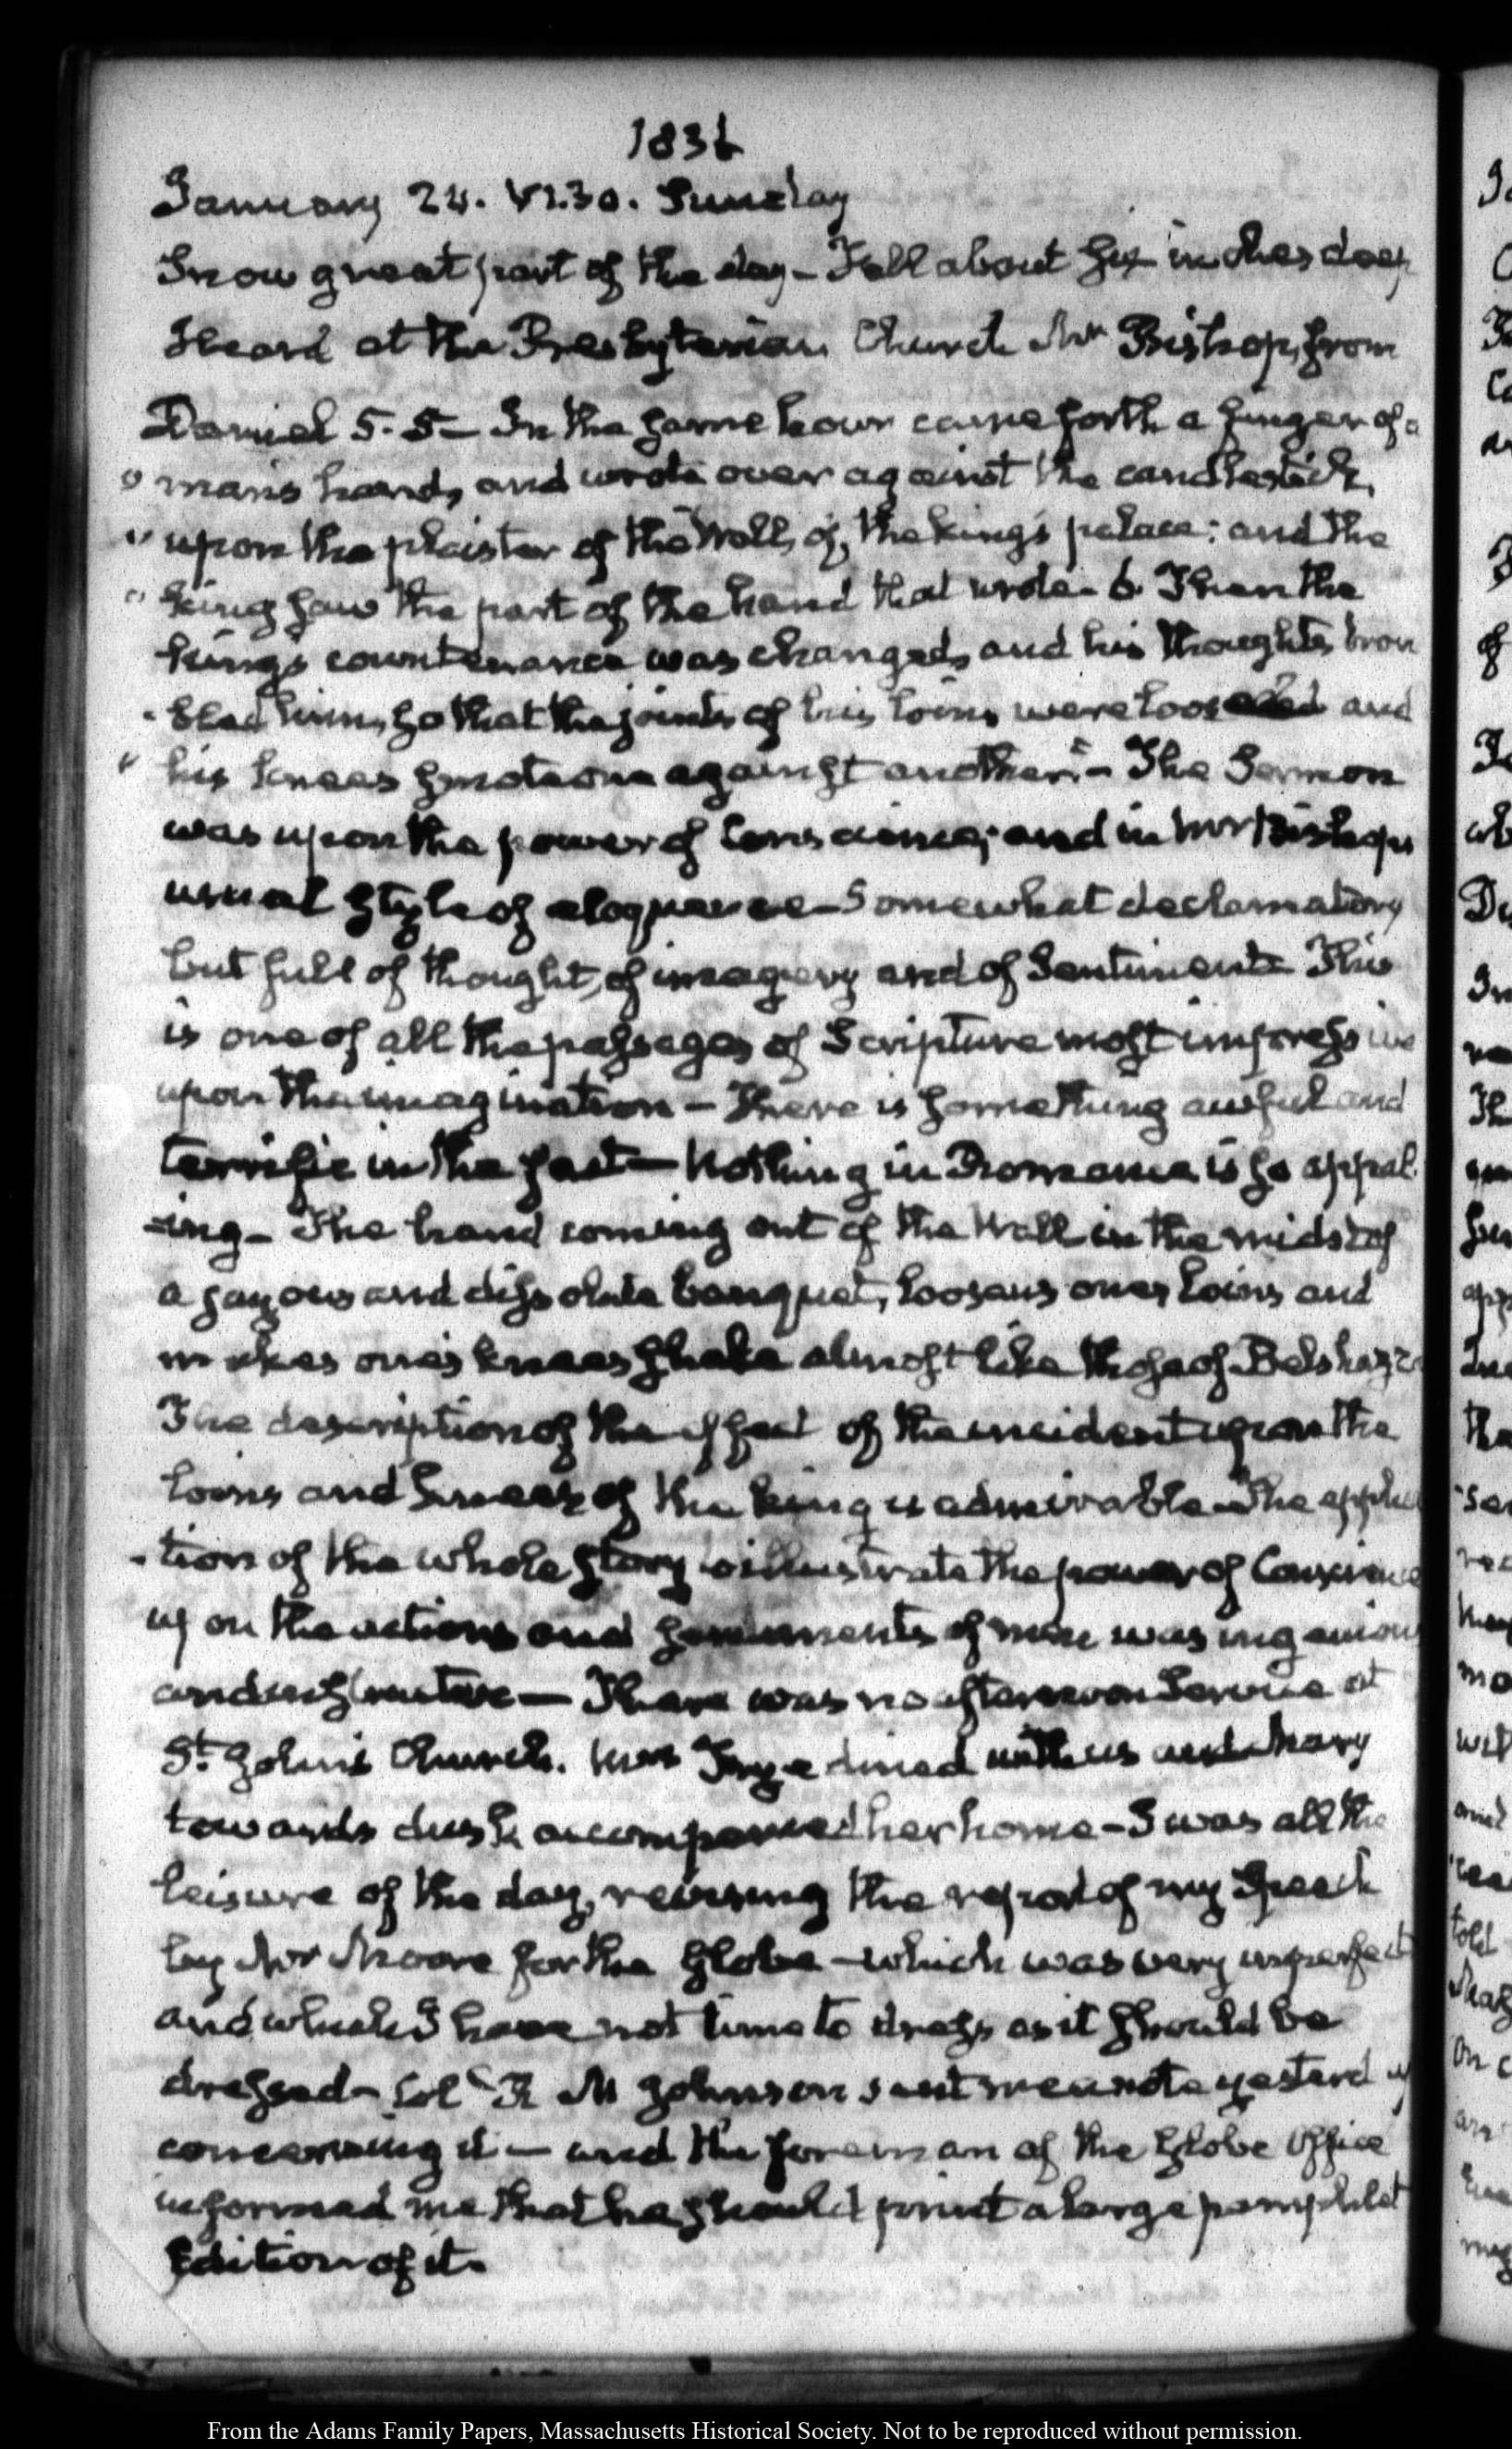 1836
January 24. VI.30. Sunday
Snow great part of the day – Fell about six inches deep
Heard at the Presbyterian Church Mr Bishop, from
Daniel 5. 5 – In the same hour came forth a finger of a
" man's hand, and wrote over against the candlestick,
" upon the plaister of the Wall, of, the king's palace: and the
" king saw the part of the hand that wrote. 6. Then the
king's countenance was changed, and his thoughts trou
- bled him, so that the joints of his loins were loosed and
" his knees smote one against another" – The Sermon
was upon the power of Conscience; and in Mr Bishop's
usual style of eloquence – Somewhat declamatory
but full of thought, of imagery and of Sentiment. This
is one of all the passages of Scripture most impressive
upon the imagination – There is something awful and
terrific in the fact – Nothing in Romance is so appal-
-ing – The hand coming out of the Wall in the midst of
a joyous and dissolute banquet, loosens ones loins and
makes one's knees shake almost like those of Belshazz
The description of the effect of the incident upon the
loins and knees of the king is admirable – The applica
- tion of the whole story to illustrate the power of Conscience
upon the actions and of man was ingenious
and instructive – There was no afternoon Service at
St. John's Church. Mrs Frye dined with us and Mary
towards dusk accompanied her home – I was all the
leisure of the day, revising the report of my Speech
by Mr Moore for the Globe – which was very imperfect
and which I have not time to dress as it should be
dressed – Col. R M Johnson sent me a note yesterday
concerning it – and the foreman of the Globe Office
informed me that he should print a large pamphlet
Edition of it.
From the Adams Family Papers, Massachusetts Historical Society. Not to be reproduced without permission.